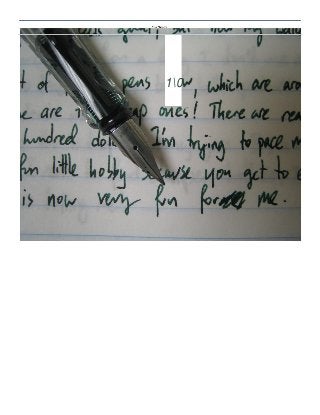 t of pens now, which are aro
e are ap ones! There are rea
hundred dol I'm trying to pace m
fun little hobby because you get to e
is now very fun for me.